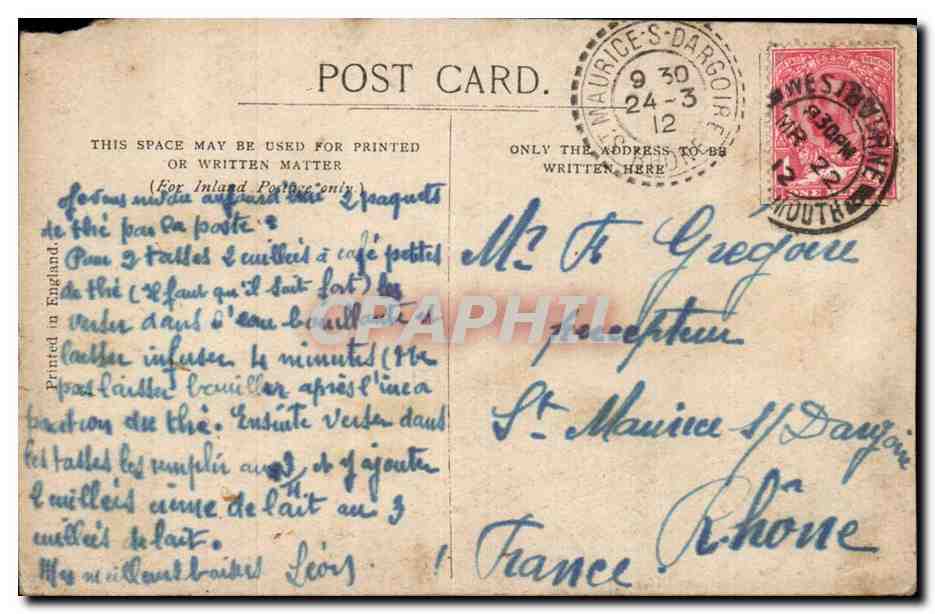 POST CARD.
THIS SPACE MAY BE USED FOR PRINTED
OR WRITTEN MATTER
(For Inland Postage only.)
ONLY THE ADDRESS TO BE
WRITTEN HERE
Printed in England.
Je vous envoie aujourd'hui 2 paquets
de thé par la poste :
Pour 2 tasses 2 cuillées à café petites
de thé (Il faut qu'il soit fort) les
verser dans d'eau bouillante et
laisser infuser 4 minutes (Ne
pas laisser bouillir après l'inca
poration du thé. Ensuite verser dans
les tasses les remplir aux 3/4 et y ajouter
2 cuillées crème de lait ou 3
cuillées de lait.
Mes meilleurs baisers Léon !
Mr. Fr. Grégoire
percepteur
St. Maurice s/ Dargoire
Rhône
France.
ST MAURICE-S-DARGOIRE
9 30
24-3
12
RHONE
WESTBOURNE
9.30PM
MR 22
12
MOUTH
CRAPHIL